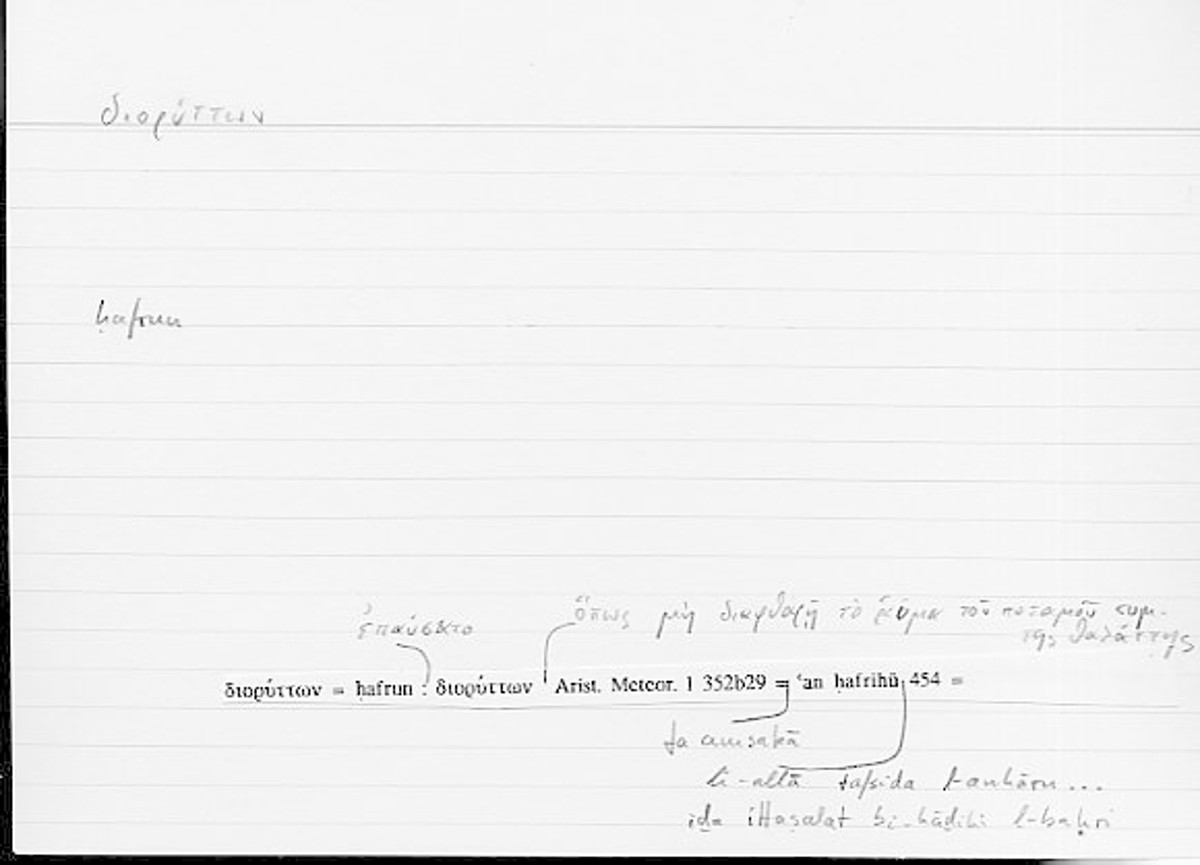 διορύττων
ḥafrun
ἐπαύσατο
ὅπως μὴ διαφθαρῇ τὸ ῥεῦμα τοῦ ποταμοῦ συμ-
τῆς θαλάττης
διορύττων = ḥafrun : διορύττων Arist. Meteor. I 352b29 = ʿan ḥafrihū 454 =
fa amsakā
li-allā tafsida l-anhāru...
iḏa ittaṣalat bi-hāḏihi l-baḥri